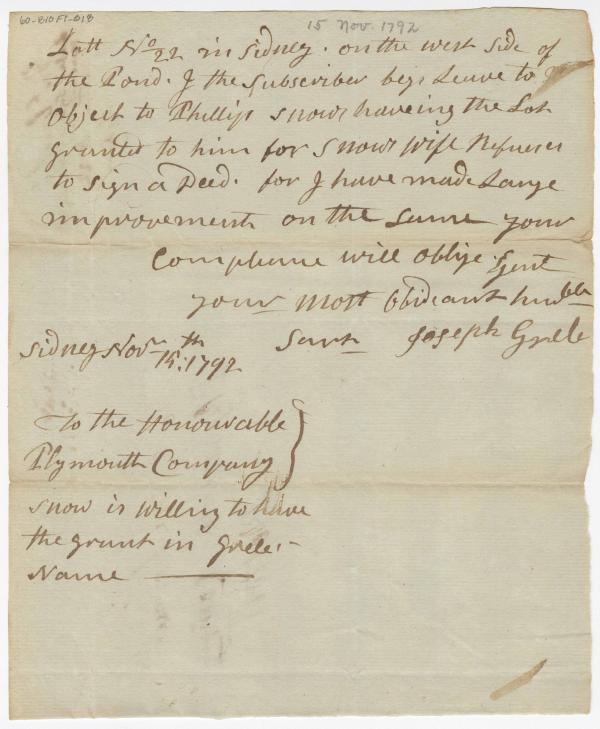 60-810F1-018
15 Nov. 1792
Lott No 22 in Sidney. on the west Side of
the Pond. I the Subscriber begs Leave to
Object to Phillip Snows haveing the Lot
granted to him for Snows Wife Refuses
to Sign a Deed. for I have made Large
improvements on the Same your
Complience will oblige Gent
your Most Obideant humble
Sidney Novr 15th: 1792 Sarvt Joseph Grele
To the Honourable
Plymouth Company
Snow is willing to have
the grant in Greles
Name